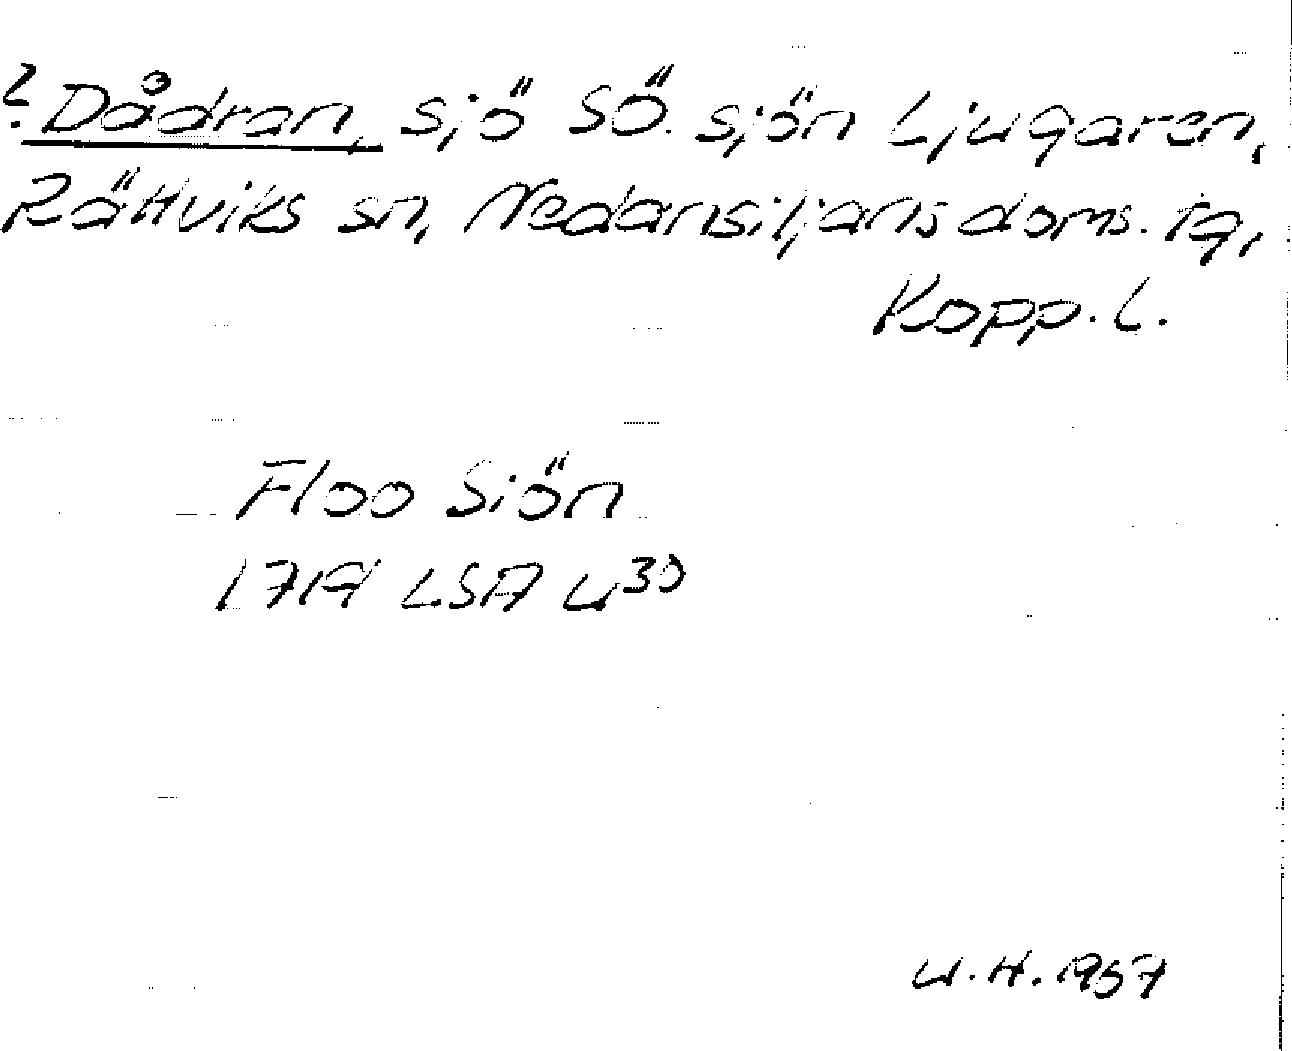 ? Dådran, sjö SÖ. sjön Ljugaren,
Rättviks sn, Nedansiljans doms. tg,
Kopp. l.
Floo Siön
LSA U30
U.H. 1957